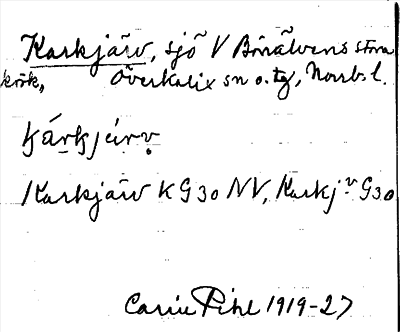 Karkjärv, sjö V Bönälvens stora
krök, Överkalix sn o. tg, Norrb. l.
kárkjärv
Karkjärv K G30 NV, Karkj.v G30
Carin Pihl 1919-27